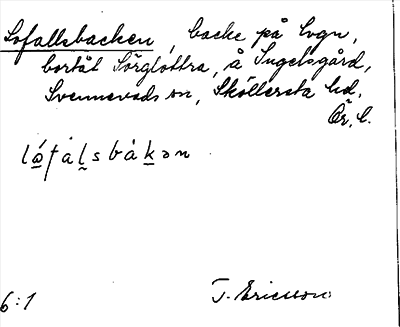 Lofallsbacken, backe på Lvgn,
bortåt Sörglottra, å Ingelsgård,
Svennevads sn, Sköllersta hd,
Ör. l.
lófàlsbàkən
6:1 T. Ericsson